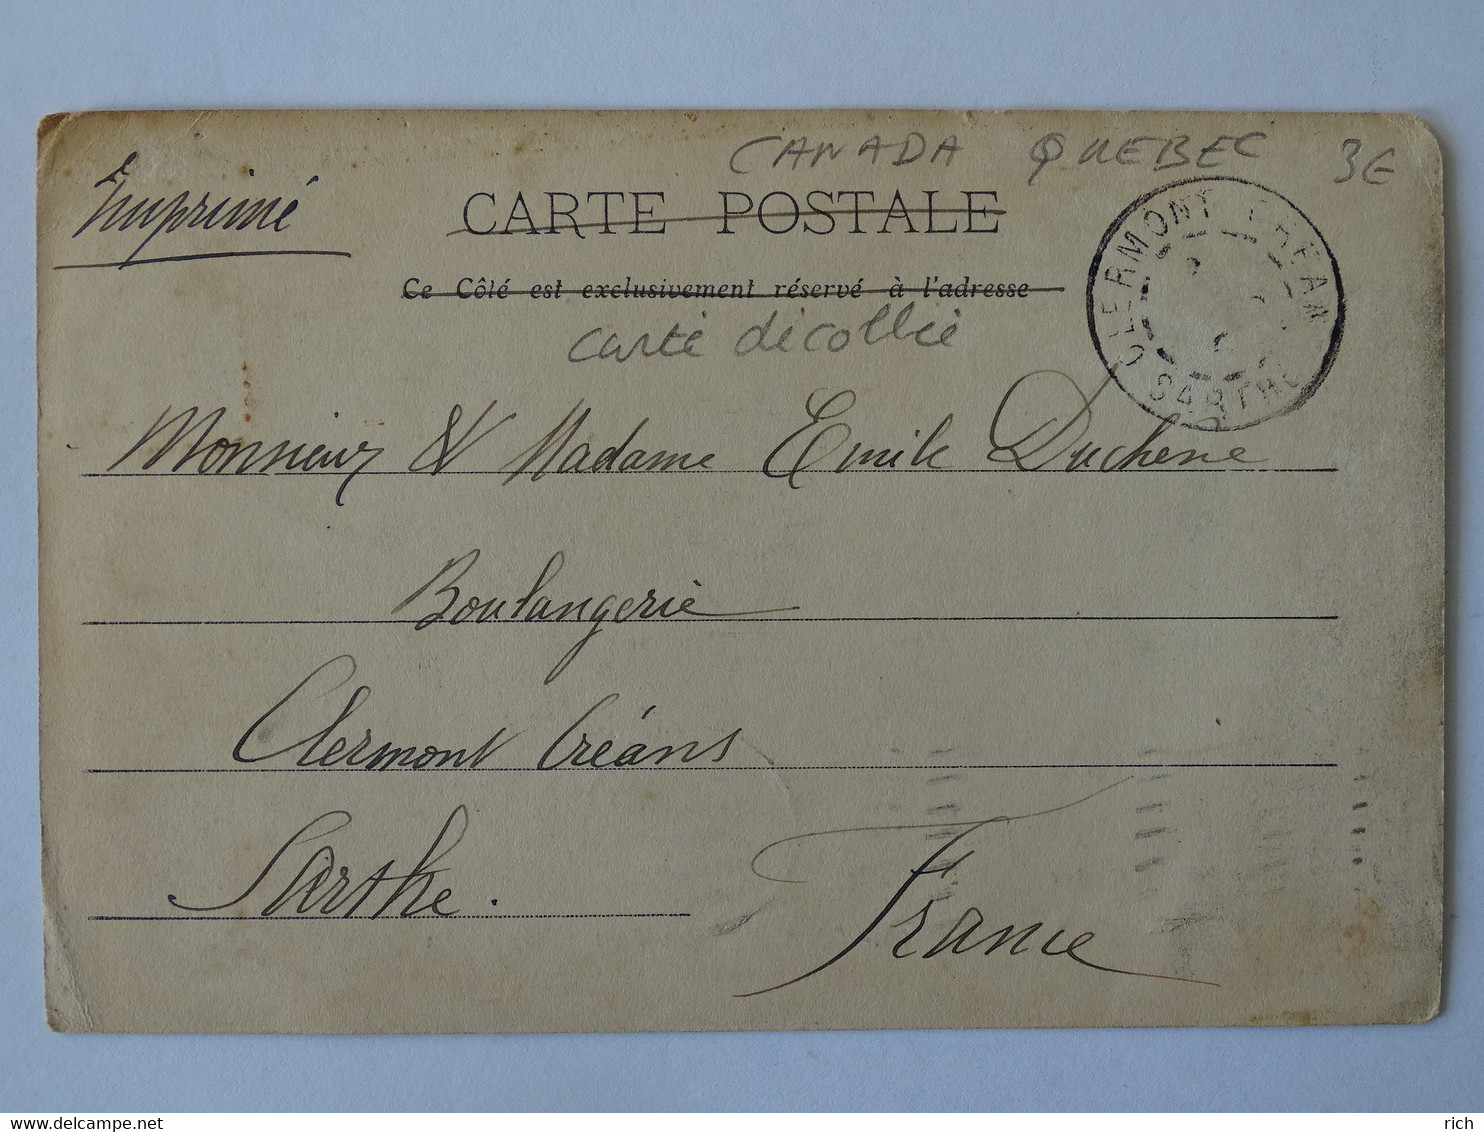 CANADA QUEBEC 3€
Imprimé
CARTE POSTALE
Ce Côté est exclusivement réservé à l'adresse
carte décollée
CLERMONT CREAN
SARTHE
Monsieur & Madame Emile Duchene
Boulangerie
Clermont Créans
Sarthe.
France
delcampe.net
rich